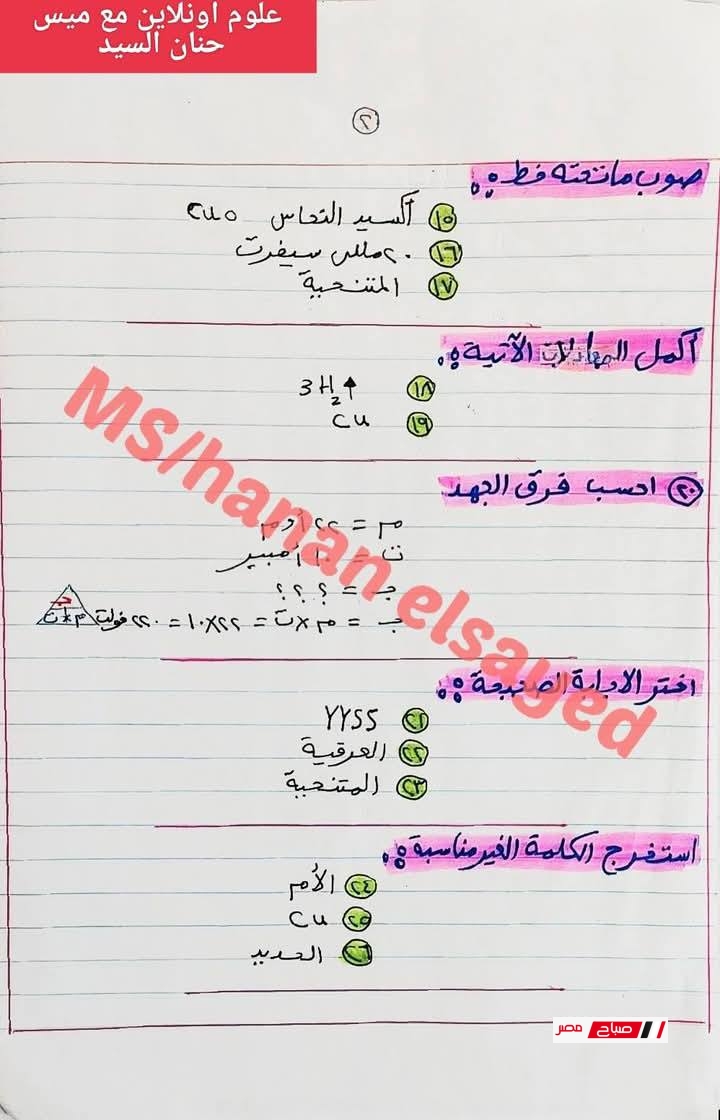 علوم أونلاين مع ميس
حنان السيد
٢
صوب ما تحته خط :
١٥ أكسيد النحاس CuO
١٦ ٢٠ مللى سيفرت
١٧ المتنحية
أكمل المعادلات الآتية :
١٨ 3H2↑
١٩ Cu
٢٠ احسب فرق الجهد
م = ٢٢ أوم
ت = ١٠ أمبير
جـ = ؟ ؟ ؟
جـ = م × ت = ٢٢×١٠ = ٢٢٠ فولت
جـ
م × ت
اختر الاجابة الصحيحة :
٢١ YYSS
٢٢ العرقية
٢٣ المتنحية
استخرج الكلمة الغير مناسبة :
٢٤ الأم
٢٥ Cu
٢٦ الحديد
MS/hanan elsayed
صباح مصر